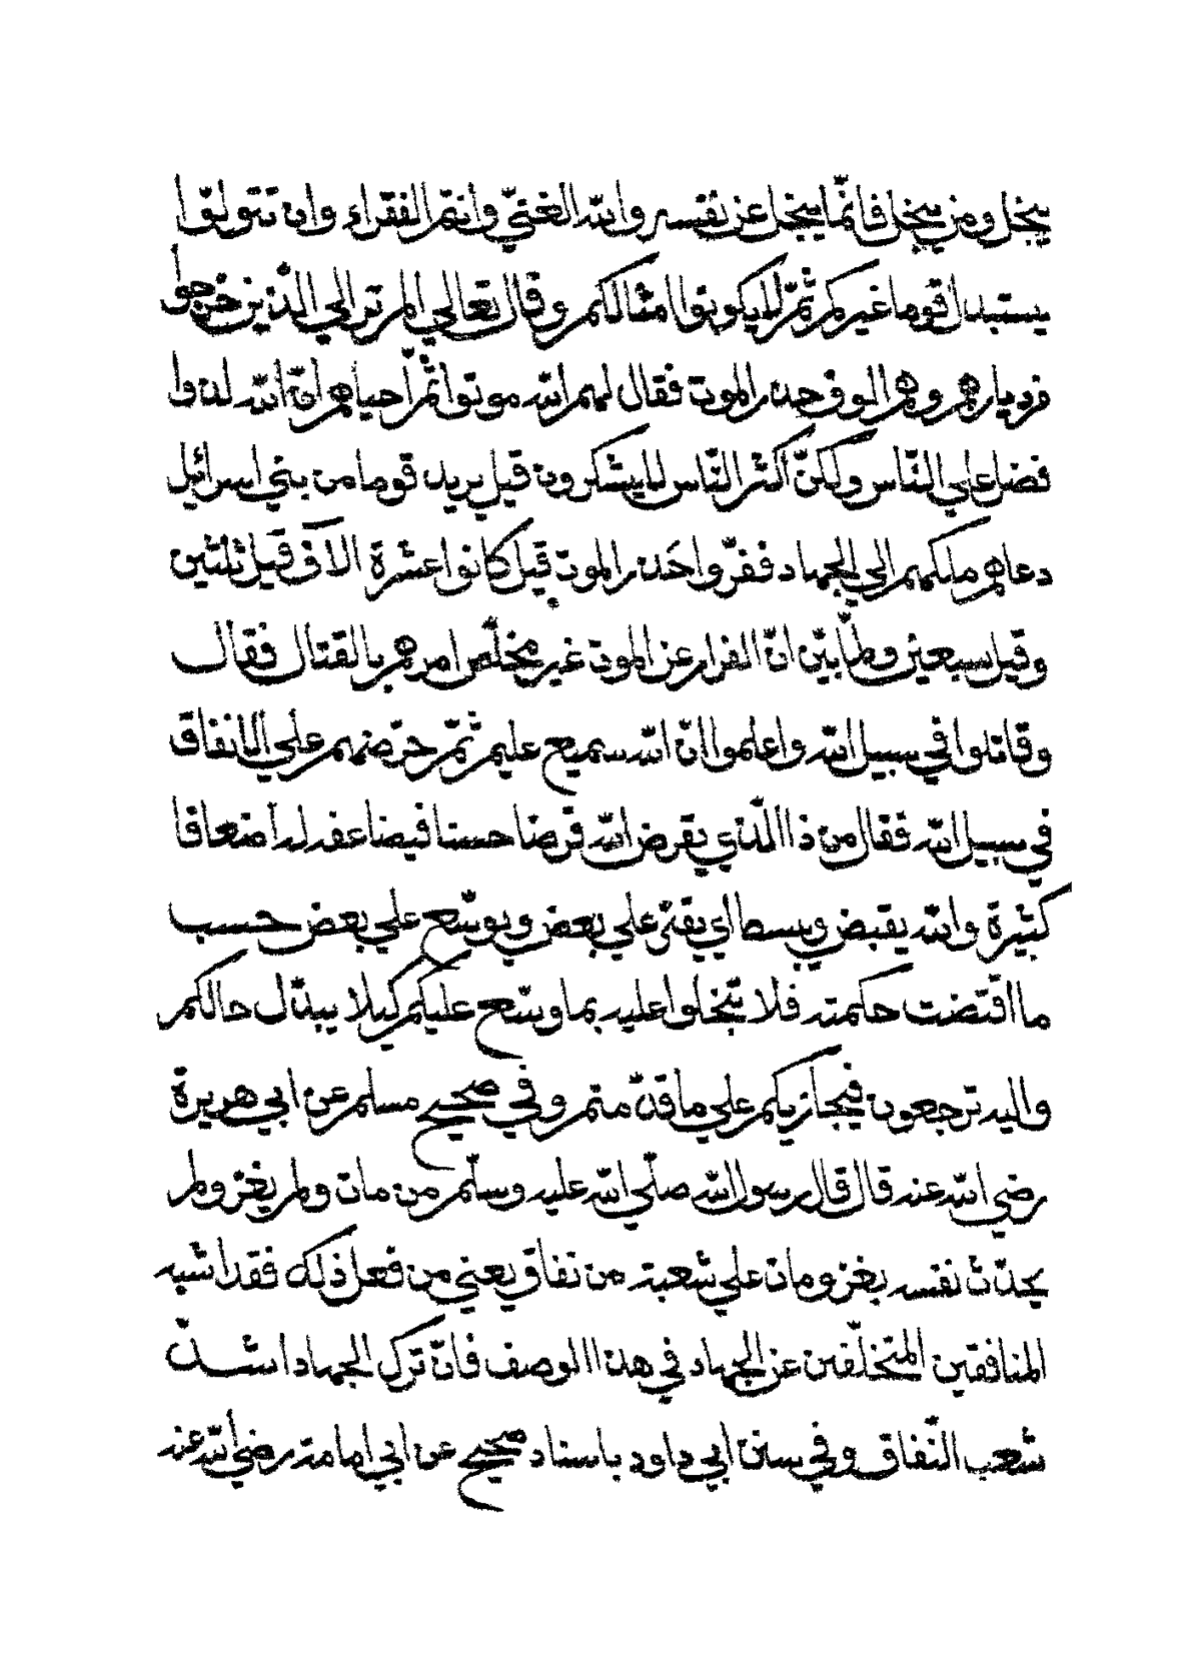 يبخل ومن يبخل فانّما يبخل عن نفسه والله الغنيّ وانتم الفقراء وان تتولّوا
يستبدل قوما غيركم ثمّ لا يكونوا امثالكم وقال تعالي الم تر الي الّذين خرجوا
من ديارهم وهم الوف حذر الموت فقال لهم الله موتوا ثمّ احياهم انّ الله لذوا
فضل علي النّاس ولكنّ اكثر النّاس لا يشكرون قيل يريد قوما من بني اسرائيل
دعاهم ملكهم الي الجهاد ففرّوا حَذر الموت قيل كانوا عشرة الآف قيل ثلثين
وقيل سبعين ولمّا بيّن انّ الفرار عن الموت غير مخلّص امرهم بالقتال فقال
وقاتلوا في سبيل الله واعلموا انّ الله سميع عليم ثمّ حرّضهم علي الانفاق
في سبيل الله فقال من ذا الّذي يقرض الله قرضا حسنا فيضاعفه له أضعافا
كثيرة والله يقبض ويبسط اي يقتر علي بعض ويوسّع علي بعض حسب
ما اقتضت حكمته فلا تبخلوا عليه بما وسّع عليكم كيلا يبدّل حالكم
واليه ترجعون فيجازيكم علي ما قدّمتم وفي صحيح مسلم عن ابي هريرة
رضي الله عنه قال قال رسول الله صلّي الله عليه وسلّم من مات ولم يغز ولم
يحدّث نفسه بغزو مات علي شعبة من نفاق يعني من فعل ذلك فقد اشبه
المنافقين المتخلّفين عن الجهاد في هذا الوصف فانّ ترك الجهاد اشدّ
شعب النّفاق وفي سنن ابي داود باسناد صحيح عن ابي امامة رضي الله عنه